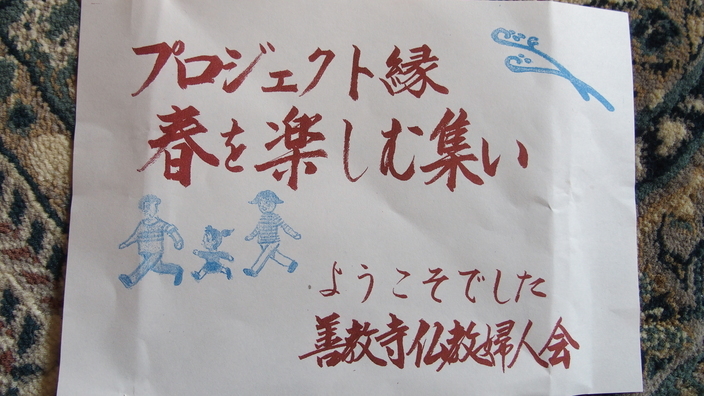 プロジェクト縁
春を楽しむ集い
ようこそでした
善教寺仏教婦人会